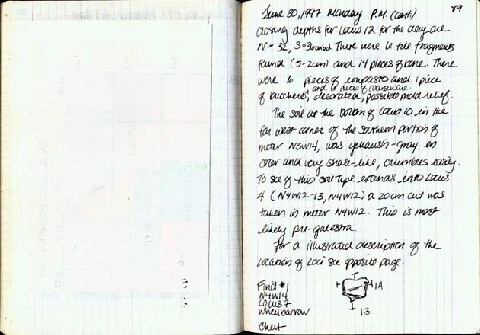 June 30, 1997 Monday P.M. (cont.) 89
closing depths for Locus 12 for the day are
N = 32, S = There were 16 tile fragments
found (5-2cm) and 14 pieces of bone. There
were 16 pieces of and 1 piece
and 16 pieces of coarseware
of bucchero, decorated, possible mold relief.
The soil at the bottom of Locus 10, in the
far west corner of the southern portion of
meter N3W14, was yellowish-gray in
color and very shale-like, crumbles easily.
To see if this soil type extends into Locus
4 (N4W12-13, N4W12) a 20cm cut was
taken in meter N4W12. This is most
likely pre-galestra.
For a illustrated description of the
location of Loci see opposite page.
Find #1
N4W14
Locus 7
wheelbarrow
1A
13